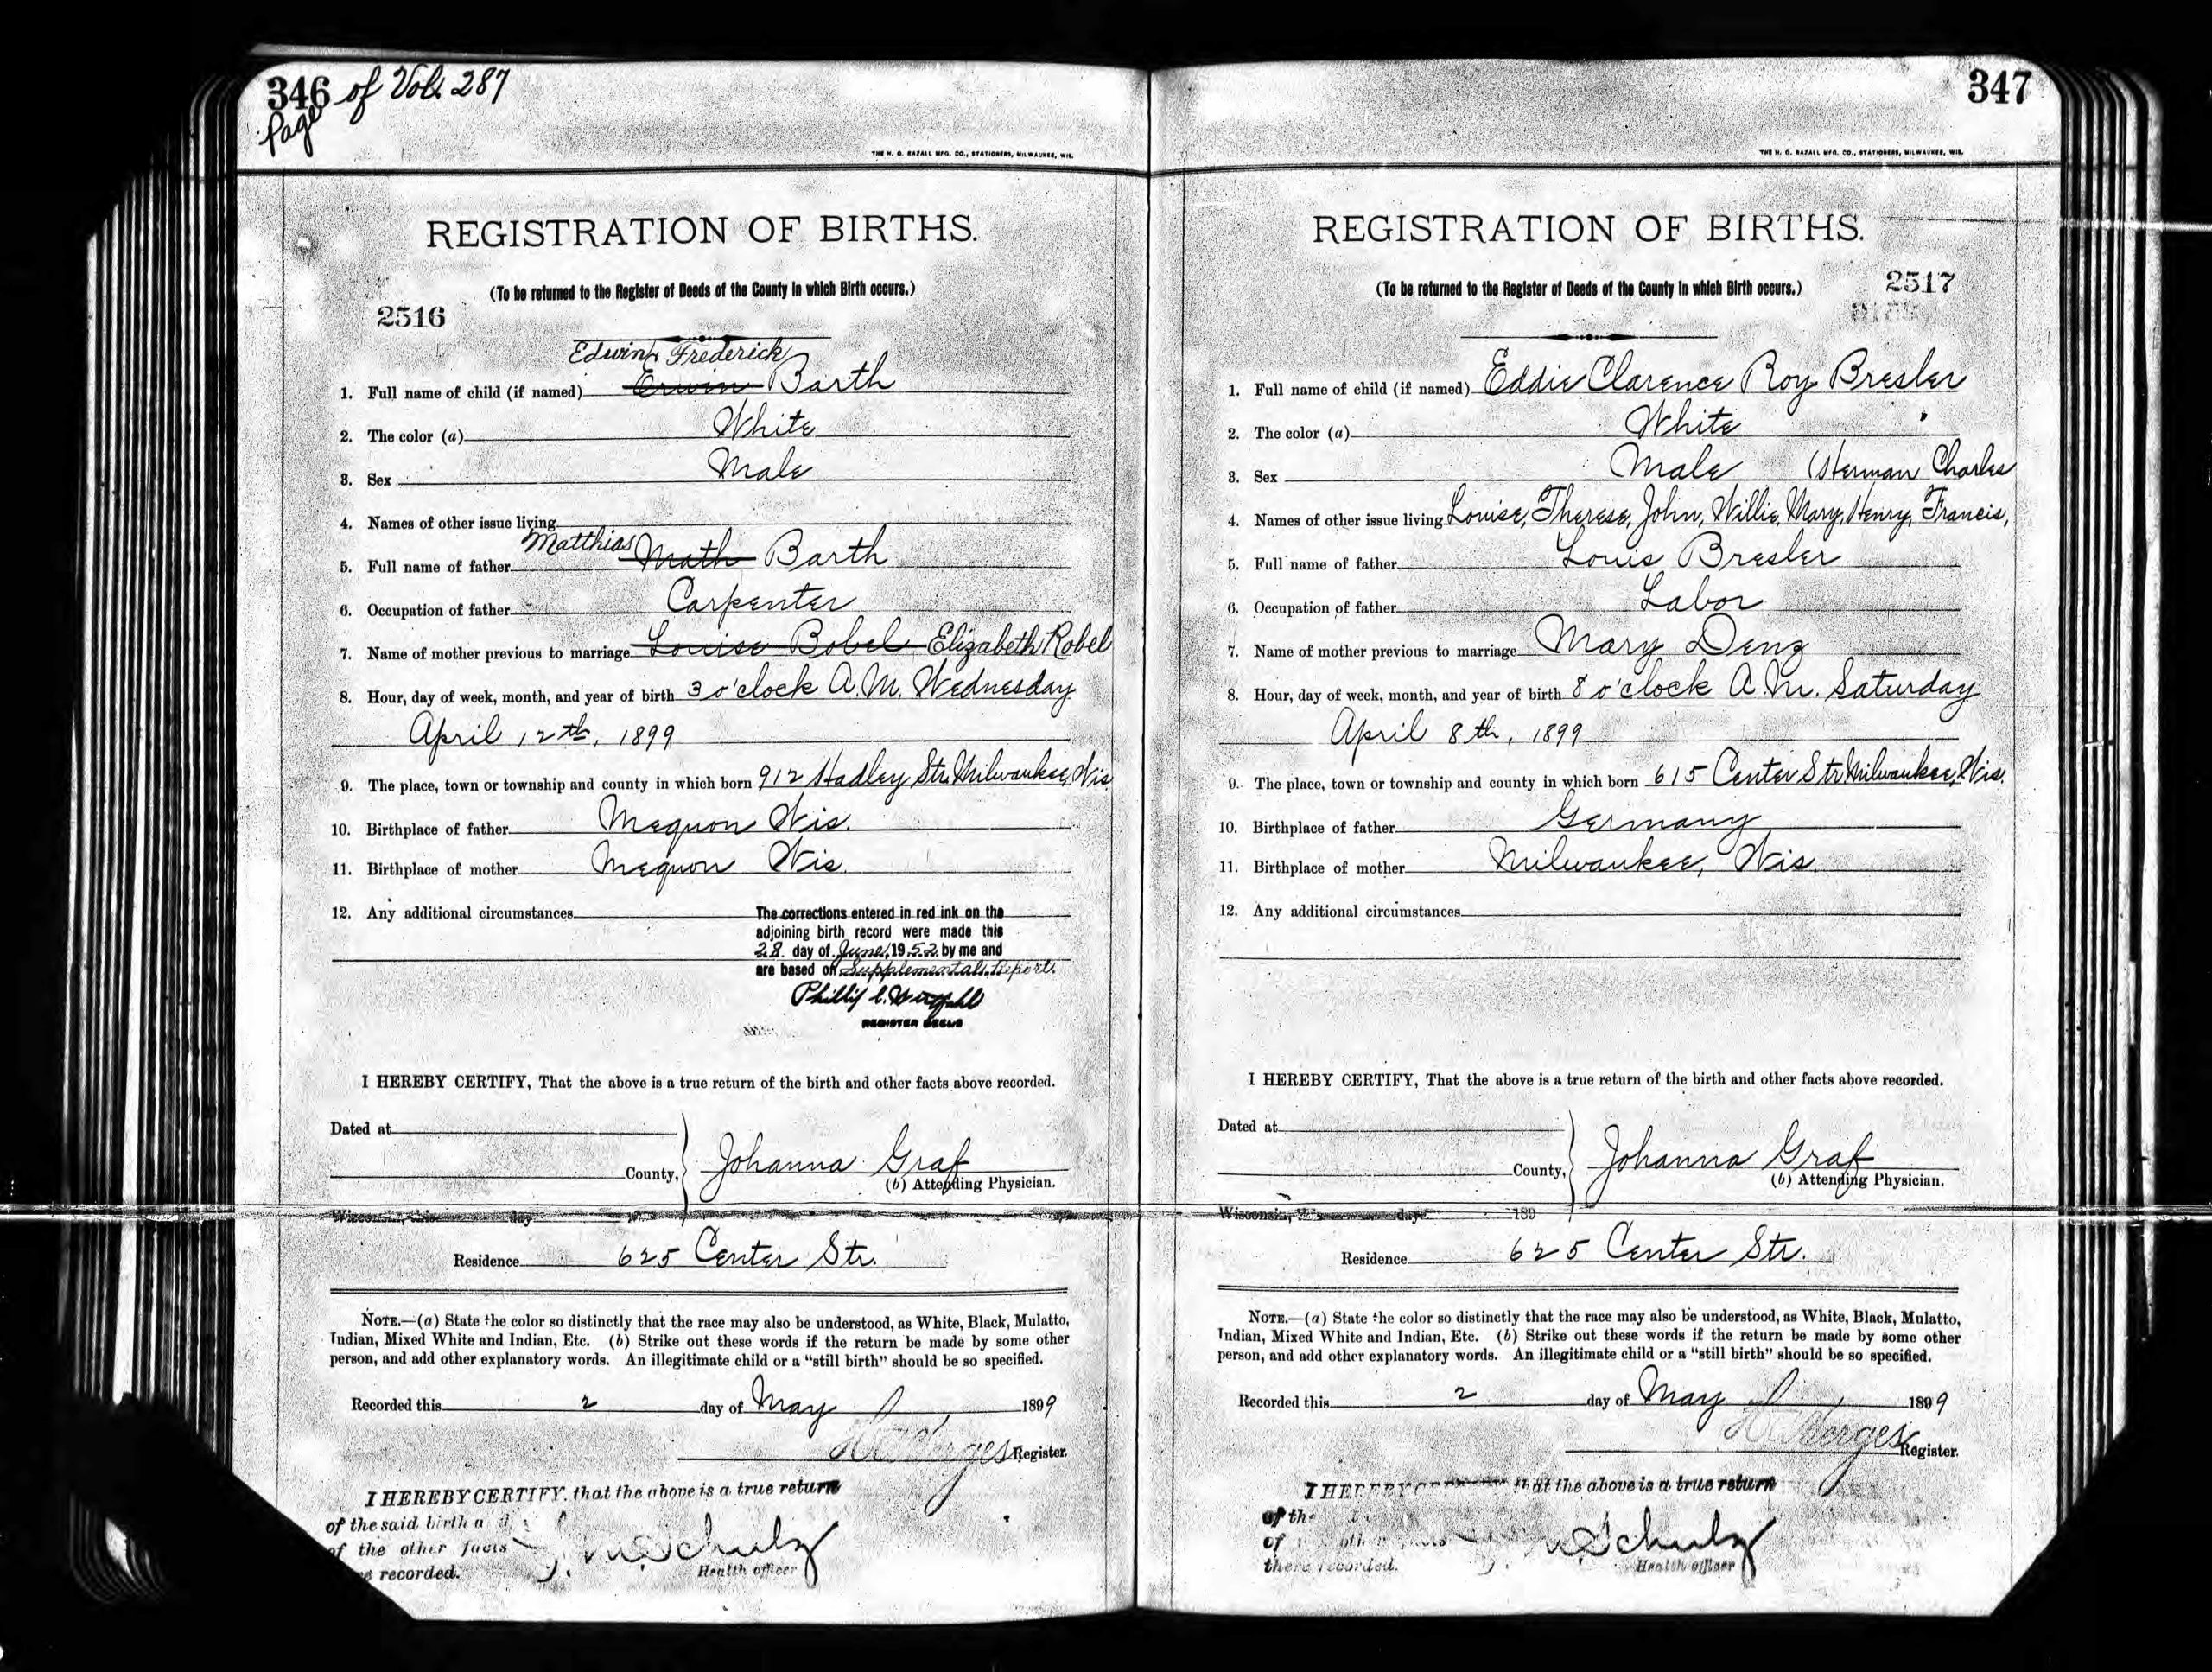 346 of Vol. 287
Page
THE H. G. RAZALL MFG. CO., STATIONERS, MILWAUKEE, WIS.
REGISTRATION OF BIRTHS.
(To be returned to the Register of Deeds of the County in which Birth occurs.)
2516
Edwin Frederick
1. Full name of child (if named) Erwin Barth
2. The color (a) White
3. Sex Male
4. Names of other issue living
Matthias
5. Full name of father Math Barth
6. Occupation of father Carpenter
7. Name of mother previous to marriage Louise Bobel Elizabeth Robel
8. Hour, day of week, month, and year of birth 3 o'clock A.M. Wednesday
April 12th, 1899
9. The place, town or township and county in which born 912 Hadley Str. Milwaukee, Wis
10. Birthplace of father Mequon Wis.
11. Birthplace of mother Mequon Wis.
12. Any additional circumstances
The corrections entered in red ink on the
adjoining birth record were made this
28 day of June, 1952 by me and
are based on Supplemental Report.
Phillip C.
REGISTER DEEDS
I HEREBY CERTIFY, That the above is a true return of the birth and other facts above recorded.
Dated at
County, Johanna Graf
(b) Attending Physician.
Wisconsin, this day
Residence 625 Center Str.
NOTE.—(a) State the color so distinctly that the race may also be understood, as White, Black, Mulatto,
Indian, Mixed White and Indian, Etc. (b) Strike out these words if the return be made by some other
person, and add other explanatory words. An illegitimate child or a "still birth" should be so specified.
Recorded this 2 day of May 1899
Register.
I HEREBY CERTIFY, that the above is a true return
of the said birth a
of the other facts
recorded.
Schulz
Health officer
347
THE H. G. RAZALL MFG. CO., STATIONERS, MILWAUKEE, WIS.
REGISTRATION OF BIRTHS.
(To be returned to the Register of Deeds of the County in which Birth occurs.)
2517
1. Full name of child (if named) Eddie Clarence Roy Bresler
2. The color (a) White
3. Sex Male (Herman Charles
4. Names of other issue living Louise, Therese, John, Willie, Mary, Henry, Francis,
5. Full name of father Louis Bresler
6. Occupation of father Labor
7. Name of mother previous to marriage Mary Denz
8. Hour, day of week, month, and year of birth 8 o'clock A.M. Saturday
April 8th, 1899
9. The place, town or township and county in which born 615 Center Str. Milwaukee, Wis.
10. Birthplace of father Germany
11. Birthplace of mother Milwaukee, Wis.
12. Any additional circumstances
I HEREBY CERTIFY, That the above is a true return of the birth and other facts above recorded.
Dated at
County, Johanna Graf
(b) Attending Physician.
Wisconsin, day 189
Residence 625 Center Str.
NOTE.—(a) State the color so distinctly that the race may also be understood, as White, Black, Mulatto,
Indian, Mixed White and Indian, Etc. (b) Strike out these words if the return be made by some other
person, and add other explanatory words. An illegitimate child or a "still birth" should be so specified.
Recorded this 2 day of May 1899
Register.
I HEREBY that the above is a true return
of
of
there recorded.
Schulz
Health officer